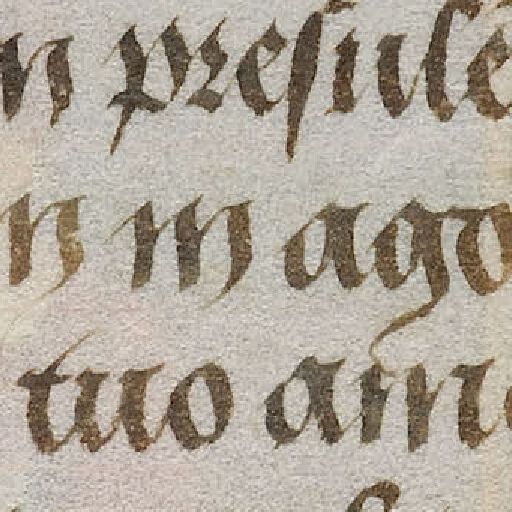 n presule
n m ago
tuo am